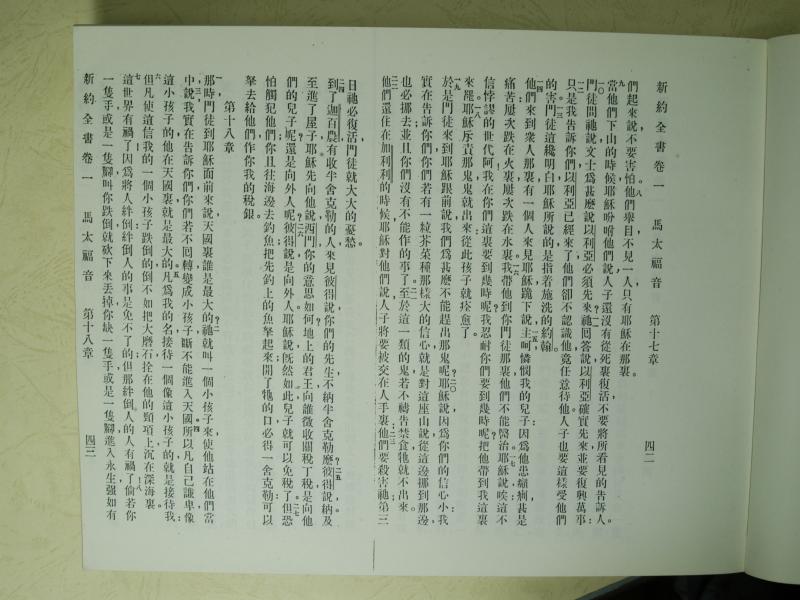 新約全書卷一　馬太福音　第十七章　四二
們起來說不要害怕他們舉目不見一人只有耶穌在那裏
當他們下山的時候耶穌吩咐他們說人子還沒有從死裏復活不要將所看見的告訴人
門徒問祂說文士為甚麼說以利亞必須先來祂回答說以利亞確實先來並要復興萬事
只是我告訴你們以利亞已經來了他們卻不認識他竟任意待他人子也要這樣受他們
的害門徒這纔明白耶穌所說的是指若施洗的約翰
他們來到眾人那裏有一個人來見耶穌跪下說主阿憐憫我的兒子因為他患癲癇病甚是
痛苦屢次跌在火裏屢次跌在水裏我帶他到你門徒那裏他們不能醫治耶穌說唉這不
信悖謬的世代阿我在你們這裏要到幾時呢我忍耐你們要到幾時呢把他帶到我這裏
來罷耶穌斥責那鬼鬼就出來從此孩子就痊愈了
於是門徒來到耶穌跟前說我們為甚麼不能趕出那鬼呢耶穌說因為你們的信心小我
實在告訴你們你們若有一粒芥菜種那樣大的信心就是對這座山說從這邊挪到那邊
也必挪去並且你們沒有不能作的事了至於這一類的鬼若不禱告禁食牠就不出來
他們還住在加利利的時候耶穌對他們說人子將要被交在人手裏他們要殺害祂第三
日祂必復活門徒就大大的憂愁
到了迦百農有收半舍克勒的人來見彼得說你們的先生不納半舍克勒麼彼得說納及
至進了屋子耶穌先向他說西門你的意思如何地上的君王向誰徵收關稅丁稅是向他
們的兒子呢還是向外人呢彼得說是向外人耶穌說既然如此兒子就可以免稅了但恐
怕觸犯他們你且往海邊去釣魚把先釣上的魚拏起來開了牠的口必得一舍克勒可以
拏去給他們作你我的稅銀
第十八章
那時門徒到耶穌面前來說天國裏誰是最大的祂就叫一個小孩子來使他站在他們當
中說我實在告訴你們你們若不回轉變成小孩子斷不能進入天國所以凡自己謙卑像
這小孩子的他在天國裏就是最大的凡為我的名接待一個像這小孩子的就是接待我
但凡使這信我的一個小孩子跌倒的倒不如把大磨石拴在他的頸項上沉在深海裏
這世界有禍了因為將人絆倒絆倒人的事是免不了的但那絆倒人的人有禍了倘若你
一隻手或是一隻腳叫你跌倒就砍下來丟掉你缺一隻手或是一隻腳進入永生强如有
新約全書卷一　馬太福音　第十八章　四三